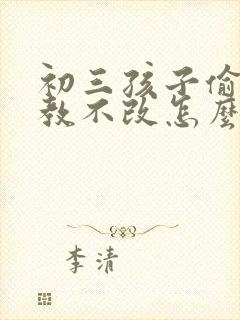 初三孩子偷
教不改怎麼
李清